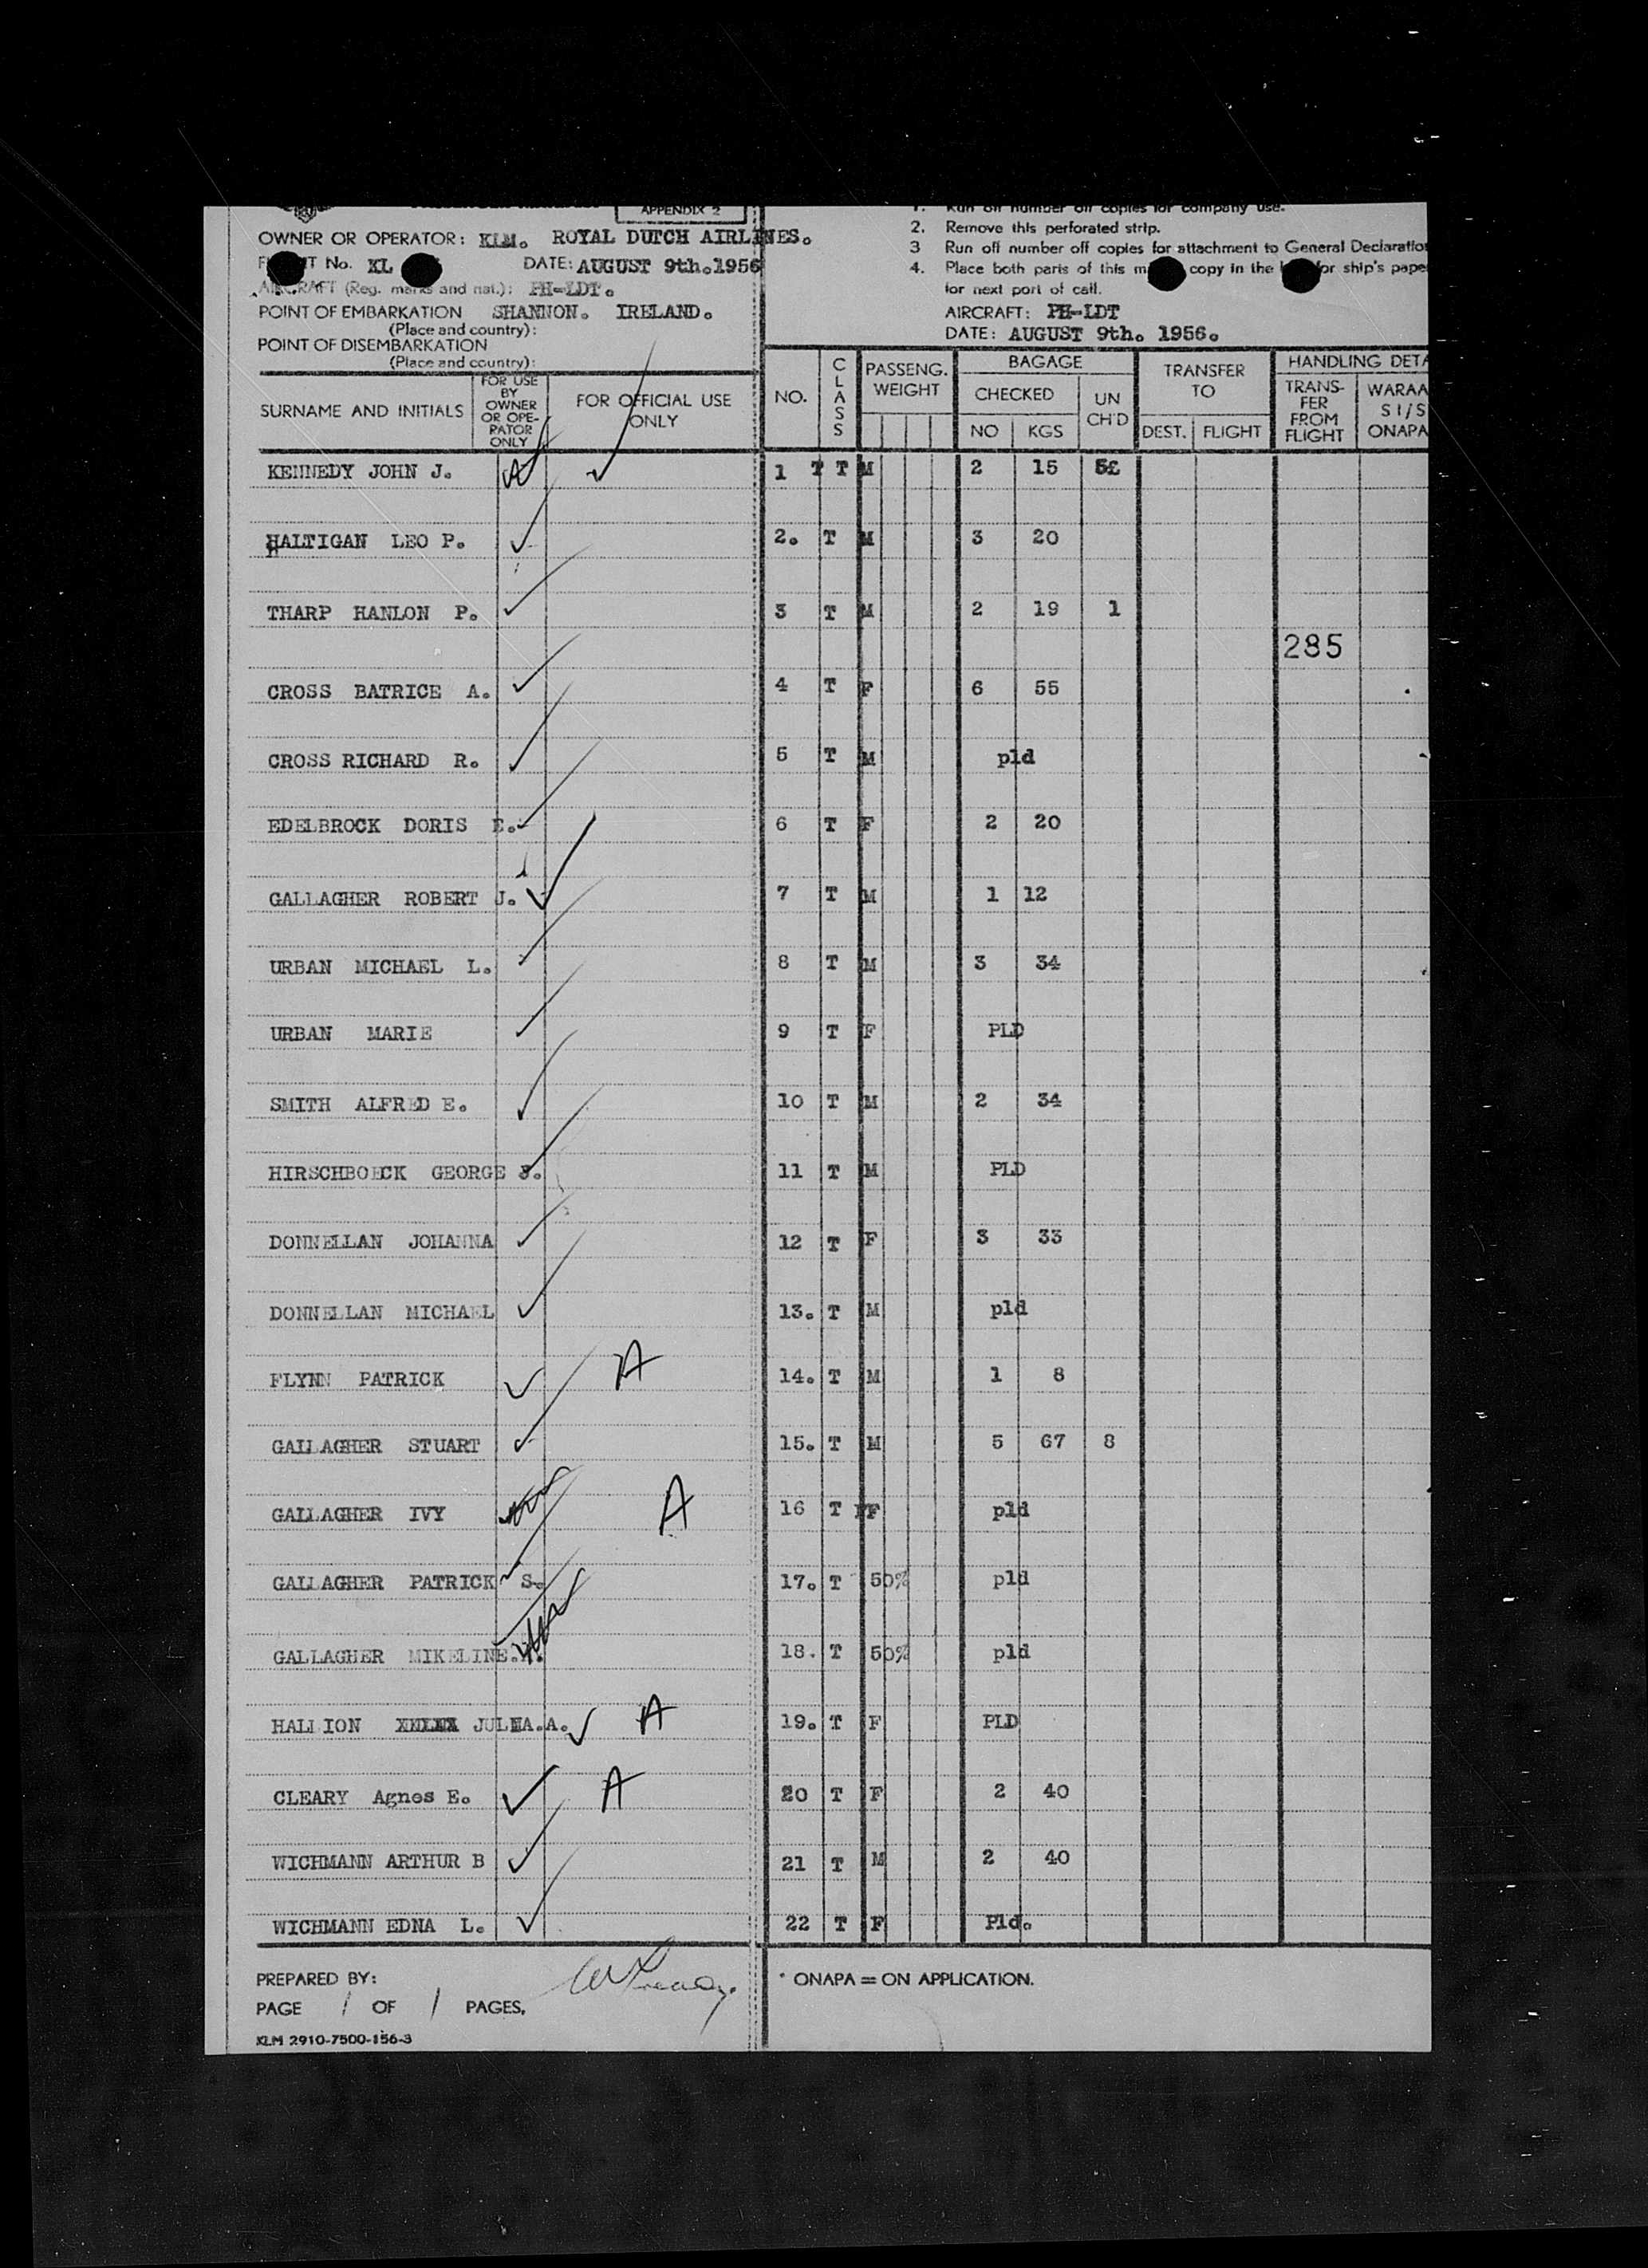 APPENDIX 2
OWNER OR OPERATOR: KLM. ROYAL DUTCH AIRLINES.
No. KL DATE: AUGUST 9th.1956
AIRCRAFT (Reg. marks and nat.): PH-LDT.
POINT OF EMBARKATION SHANNON. IRELAND.
(Place and country):
POINT OF DISEMBARKATION
(Place and country):
1. Run off number off copies for company use.
2. Remove this perforated strip.
3 Run off number off copies for attachment to General Declaration
4. Place both parts of this copy in the for ship's pape
for next port of call.
AIRCRAFT: PH-LDT
DATE: AUGUST 9th. 1956.
SURNAME AND INITIALS
FOR USE BY OWNER OR OPE-RATOR ONLY
FOR OFFICIAL USE ONLY
NO.
CLASS
PASSENG. WEIGHT
BAGAGE
CHECKED
NO KGS
UN CH'D
TRANSFER TO
DEST. FLIGHT
HANDLING DETA
TRANS-FER FROM FLIGHT
WARAA S I/S ONAPA
KENNEDY JOHN J. 1 T T M 2 15
HALTIGAN LEO P. 2. T M 3 20
THARP HANLON P. 3 T M 2 19 1
285
CROSS BATRICE A. 4 T F 6 55
CROSS RICHARD R. 5 T M pld
EDELBROCK DORIS E. 6 T F 2 20
GALLAGHER ROBERT J. 7 T M 1 12
URBAN MICHAEL L. 8 T M 3 34
URBAN MARIE 9 T F PLD
SMITH ALFRED E. 10 T M 2 34
HIRSCHBOECK GEORGE J. 11 T M PLD
DONNELLAN JOHANNA 12 T F 3 33
DONNELLAN MICHAEL 13. T M pld
FLYNN PATRICK A 14. T M 1 8
GALLAGHER STUART 15. T M 5 67 8
GALLAGHER IVY A 16 T F pld
GALLAGHER PATRICK S. 17. T 50% pld
GALLAGHER MIKELINE. 18. T 50% pld
HALLION JULIA.A. A 19. T F PLD
CLEARY Agnes E. A 20 T F 2 40
WICHMANN ARTHUR B 21 T M 2 40
WICHMANN EDNA L. 22 T F Pld.
PREPARED BY:
PAGE 1 OF 1 PAGES,
KLM 2910-7500-156-3
* ONAPA = ON APPLICATION.